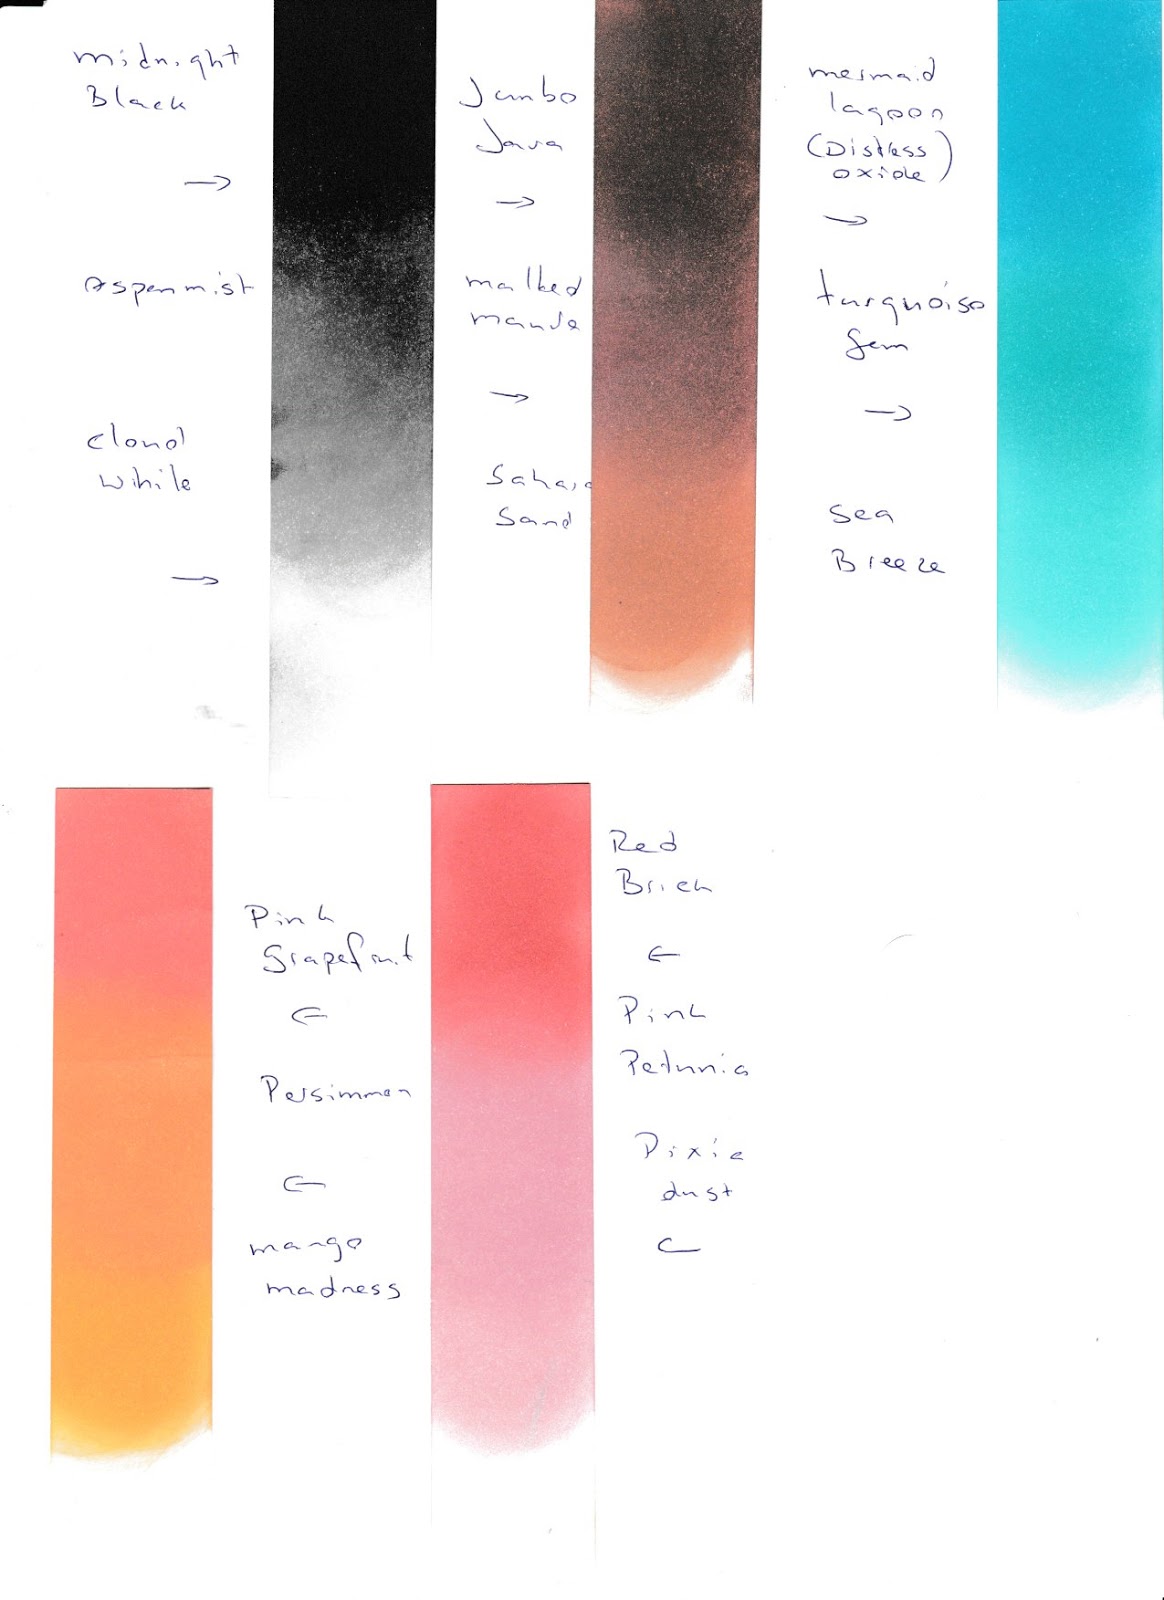 midnight
Black
→
aspenmist
cloud
while
→
Jumbo
Java
→
malked
mauve
→
Sahara
Sand
mermaid
lagoon
(Distress
oxide)
→
turquoise
Gem
→
Sea
Breeze
Pink
Grapefruit
←
Persimmon
←
mango
madness
Red
Brick
←
Pink
Petunia
Pixie
dust
←